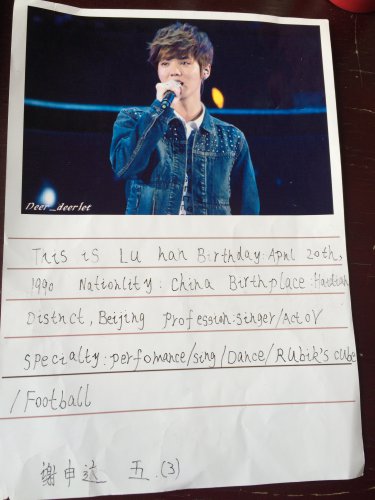 Deer_deerlet
This is Lu han Birthday:April 20th,
1990 Nationlity: China Birthplace:Haidian
District, Beijing Profession:singer/Actor
Specialty:perfomance/sing/Dance/RUbik's cUbe
/Football
谢申达 五.(3)